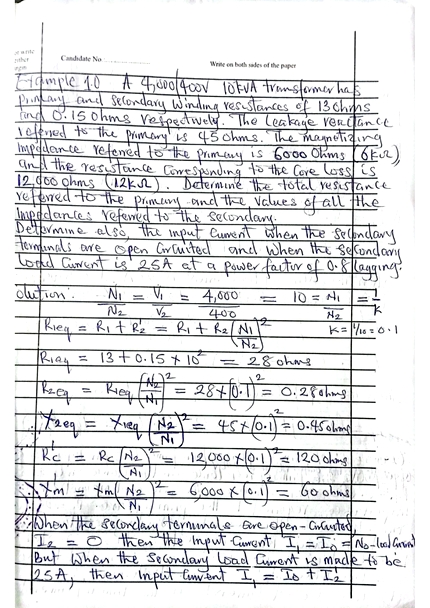 Candidate No
Write on both sides of the paper
Example 10 A 4,000/400V 10kVA transformer has
primary and secondary winding resistances of 13 ohms
and 0.15 ohms respectively. The leakage reactance
referred to the primary is 45 ohms. The magnetizing
impedance referred to the primary is 6000 Ohms (6kΩ),
and the resistance corresponding to the core loss is
12,000 ohms (12kΩ). Determine the total resistance
referred to the primary and the values of all the
impedances referred to the secondary.
Determine also, the input current when the secondary
terminals are open circuited and when the secondary
load current is 25A at a power factor of 0.8 lagging.
olution: N1/N2 = V1/V2 = 4,000/400 = 10 = N1/N2 = 1/K
R1eq = R1 + R2' = R1 + R2 (N1/N2)² K = 1/10 = 0.1
R1eq = 13 + 0.15 × 10² = 28 ohms
R2eq = R1eq (N2/N1)² = 28 × (0.1)² = 0.28 ohms
X2eq = X1eq (N2/N1)² = 45 × (0.1)² = 0.45 ohms
Rc' = Rc (N2/N1)² = 12,000 × (0.1)² = 120 ohms
Xm' = Xm (N2/N1)² = 6,000 × (0.1)² = 60 ohms
When the secondary terminals are open-circuited,
I2 = 0 then the input current I1 = I0 = No-load current
But when the secondary load current is made to be
25A, then input current I1 = I0 + I2'